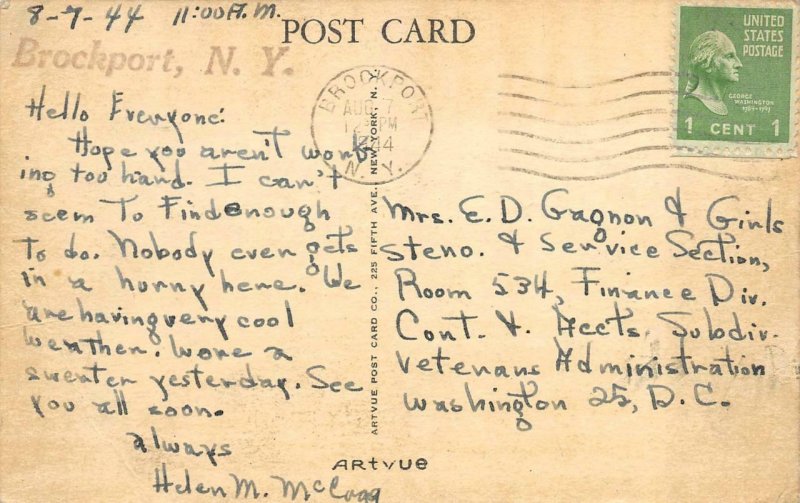 8-7-44 11:00 A.M.
POST CARD
Brockport, N. Y.
UNITED
STATES
POSTAGE
GEORGE
WASHINGTON
1789-1797
1 CENT 1
BROCKPORT
AUG 7
PM
1944
N. Y.
Hello Everyone:
Hope you aren't work-
ing too hard. I can't
seem To Find enough
To do. Nobody ever gets
in a hurry here. We
are having very cool
weather. Wore a
sweater yesterday. See
you all soon.
always
Helen M.
Mrs. E. D. Gagnon & Girls
Steno. & Service Section,
Room 534, Finance Div.
Cont. & Accts. Subdiv.
Veterans Administration
Washington 25, D.C.
ARTVUE POST CARD CO., 225 FIFTH AVE., NEW YORK, N.
ARTVUE